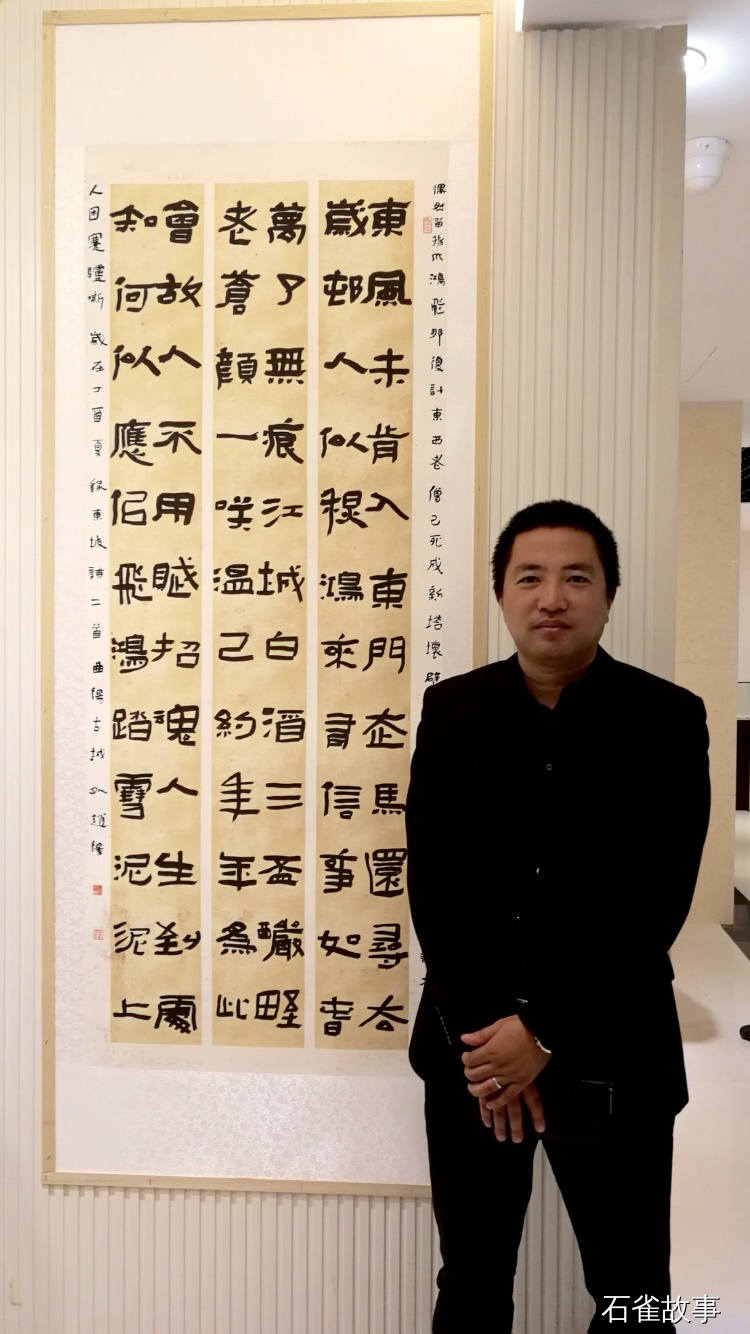 東風未肯入東門走馬還尋去
歲邨人似穐鴻來有信事如春
夢了無痕江城白酒三盃釅野
老蒼顏一咲溫已約年年為此
會故人不用賦招魂人生到處
知何似應佀飛鴻踏雪泥泥上
偶然留指爪鴻飛那復計東西老僧已死成新塔壞壁
人困蹇驢嘶 歲在丁酉夏 錄東坡詩二首 曲陽古城 趙陽
石雀故事